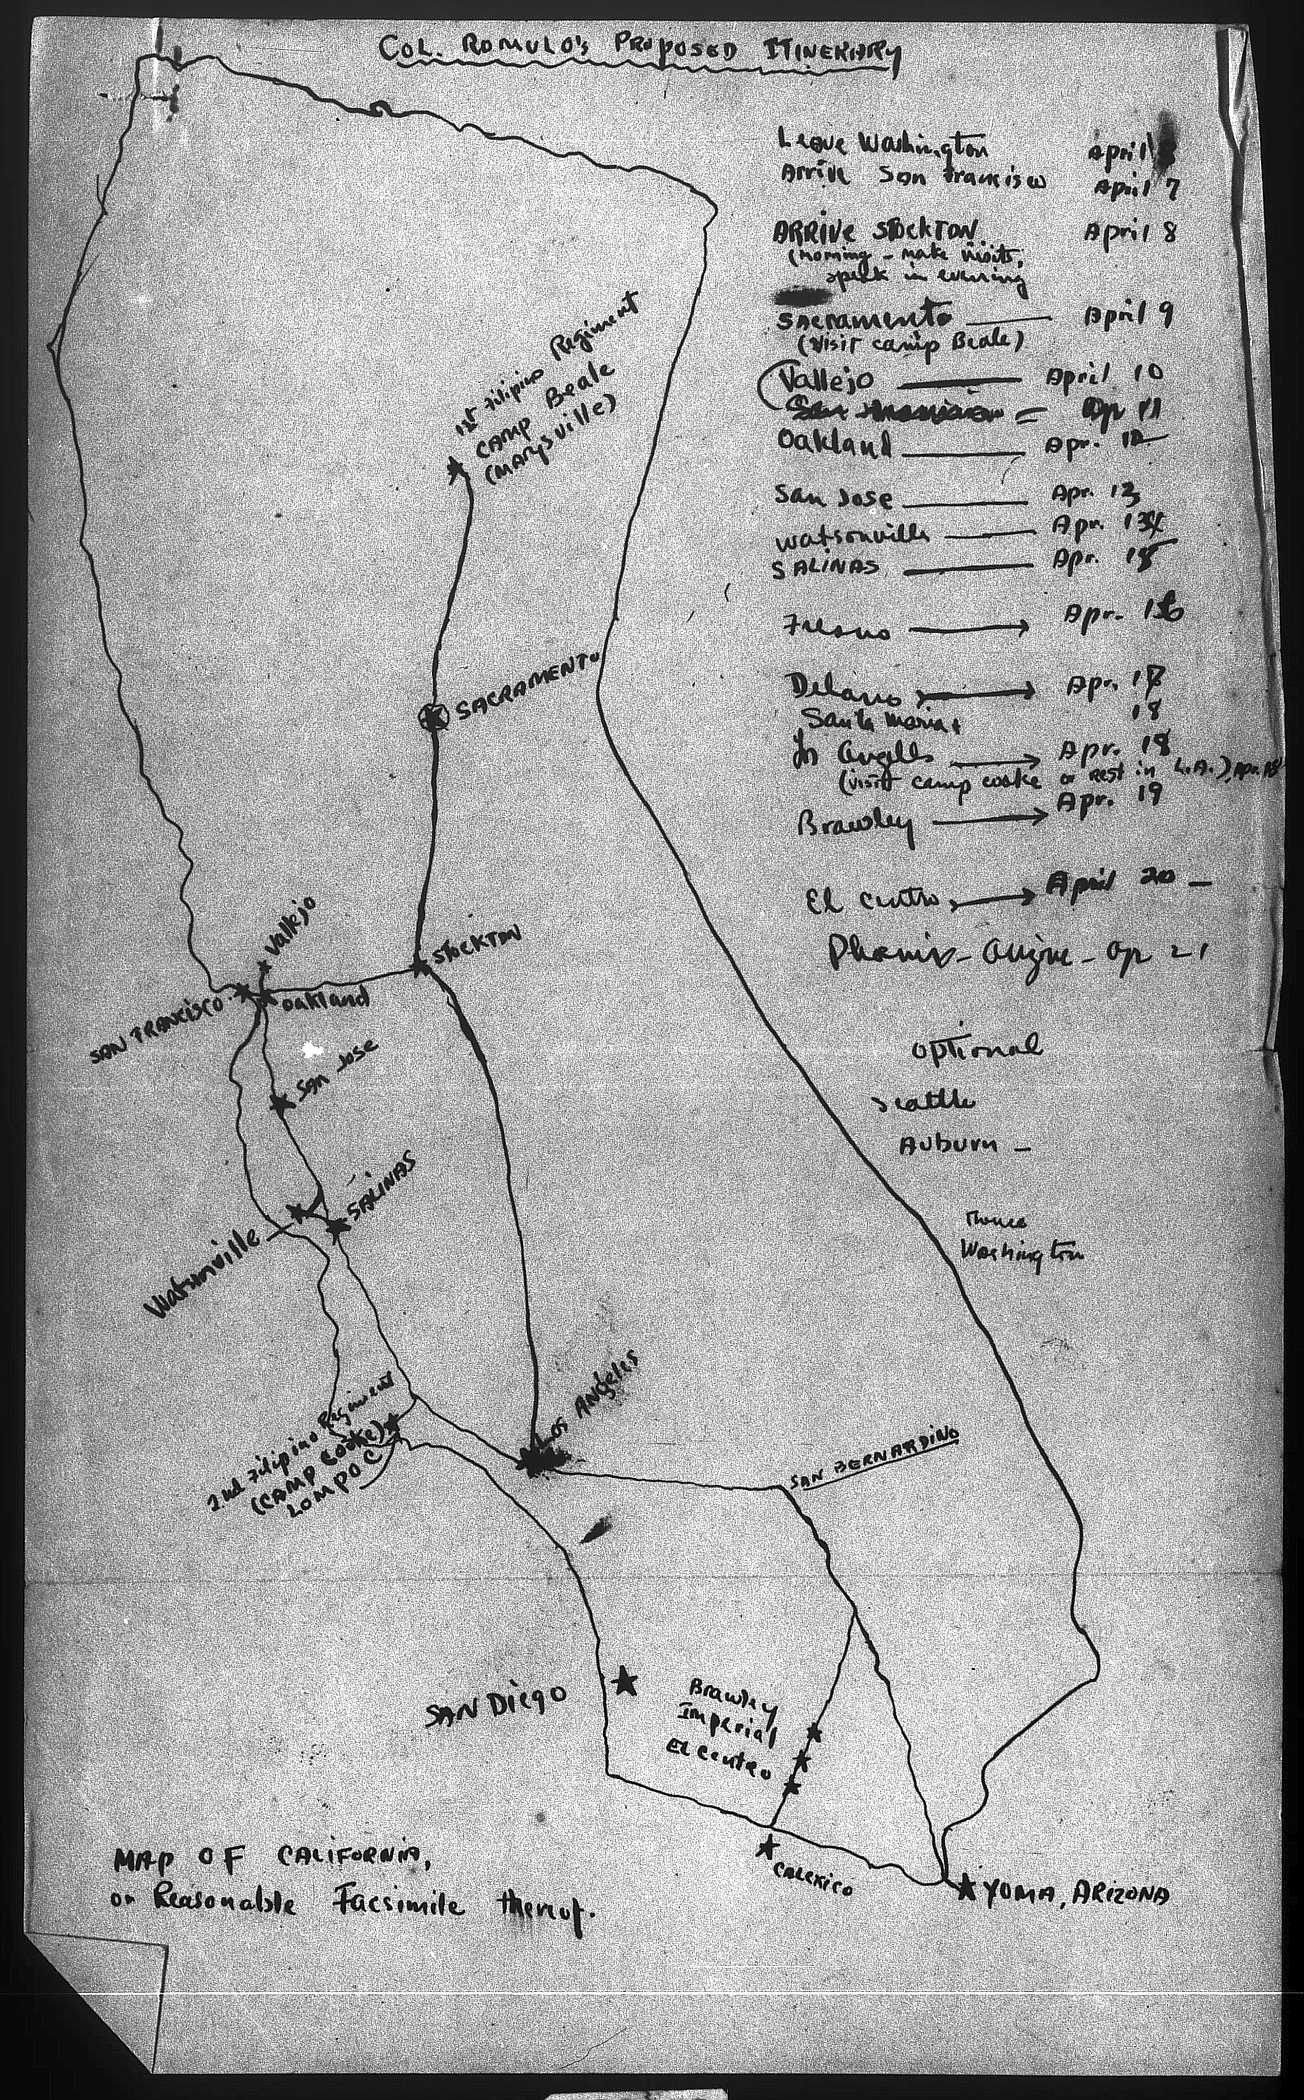 COL. ROMULO'S PROPOSED ITINERARY
Leave Washington April
Arrive San Francisco April 7
ARRIVE STOCKTON April 8
(morning - make visits,
speak in evening
Sacramento April 9
(Visit camp Beale)
Vallejo April 10
Apr 11
Oakland Apr. 12
San Jose Apr. 13
Watsonville Apr.
SALINAS Apr. 15
Fresno Apr. 16
Delano Apr. 17
Santa Maria 18
Los Angeles Apr. 18
(visit camp cooke or Rest in L.A.), Apr. 18
Brawley Apr. 19
El Centro April 20 -
Phoenix - Arizona - Ap 21
optional
Seattle
Auburn -
Thence
Washington
1st Filipino Regiment
CAMP Beale
(MARYSVILLE)
SACRAMENTO
Vallejo
STOCKTON
SAN FRANCISCO
Oakland
San Jose
SALINAS
Watsonville
2nd Filipino Regiment
(CAMP Cooke)
LOMPOC
LOS ANGELES
SAN BERNARDINO
SAN DIEGO
Brawley
Imperial
El Centro
CALEXICO
YUMA, ARIZONA
MAP OF CALIFORNIA,
or Reasonable Facsimile thereof.